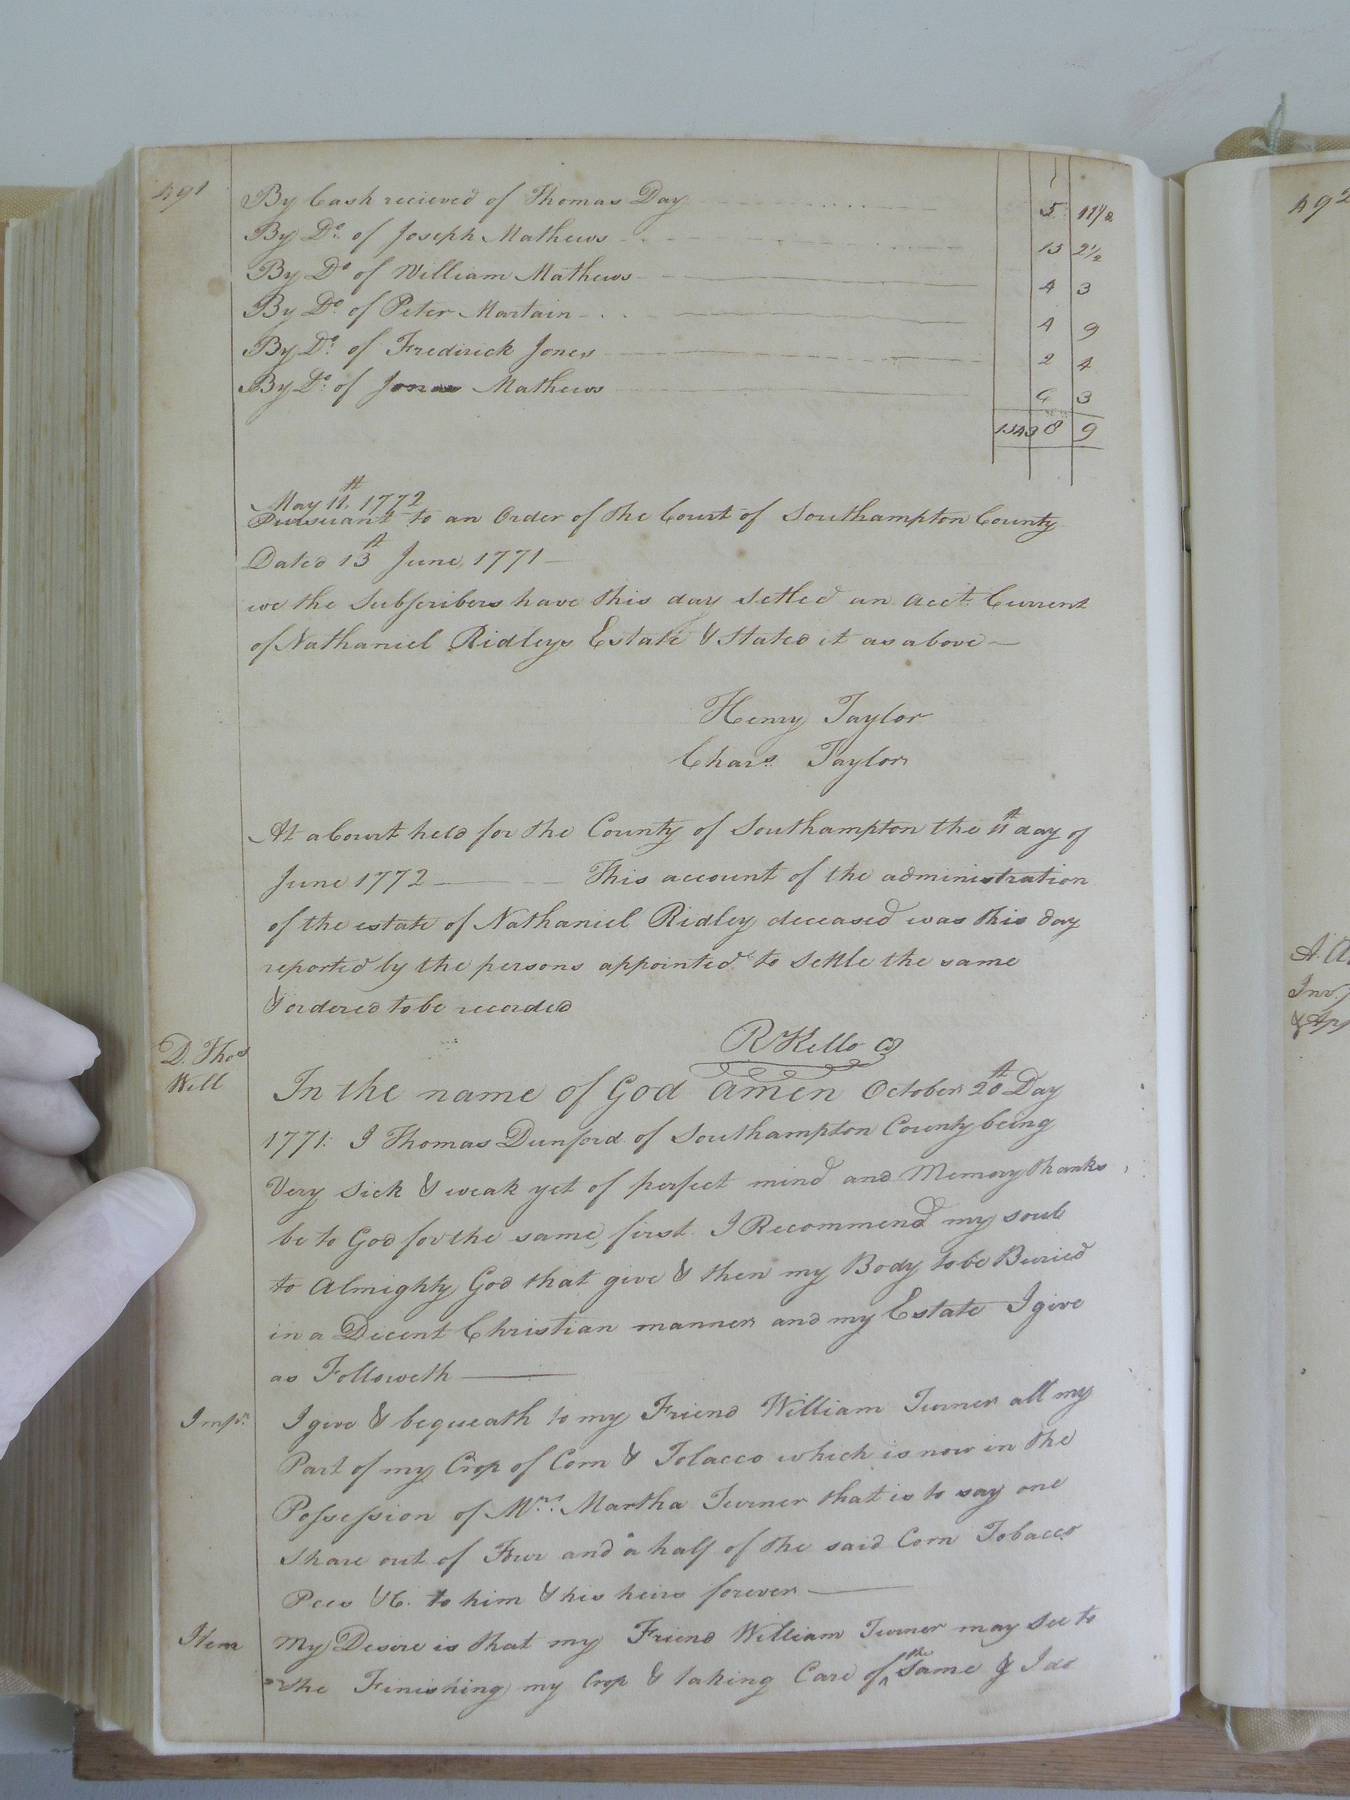 491
By Cash recieved of Thomas Day 5 11½
By Do. of Joseph Mathews 15 2½
By Do of William Mathews 4 3
By Do of Peter Martain 4 9
By Do. of Fredirick Jones 2 4
By Do. of Jonas Mathews 6 3
1543 8 9
May 11th 1772
Pursuant to an Order of the Court of Southampton County
Dated 13th June 1771—
we the Subscribers have this day Setled an acct. Current
of Nathaniel Ridleys Estate & Stated it as above—
Henry Taylor
Chars. Taylor
At a Court held for the County of Southampton the 11th day of
June 1772 — — This account of the administration
of the estate of Nathaniel Ridley deceased was this day
reported by the persons appointed to Settle the same
& ordered to be recorded
R Kello
D. Thos
Will
In the name of God amen October 20th Day
1771: I Thomas Dunford of Southampton County being
Very Sick & weak yet of perfect mind and Memory thanks
be to God for the same, first I Recommend my soul
to Almighty God that give & then my Body to be Buried
in a Decent Christian manner and my Estate I give
as Followeth —
Impr. I give & bequeath to my Friend William Turner all my
Part of my Crop of Corn & Tobacco which is now in the
Possession of Mrs. Martha Turner that is to say one
Share out of Four and a half of the said Corn Tobacco
Pees &C. to him & his heirs forever —
Item My Desire is that my Friend William Turner may See to
the Finishing my Crop & taking Care of the Same & I do
492
A.
Inv.